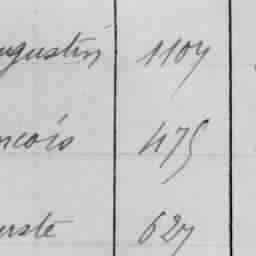 ugustin 1107
ncois 475
uste 627